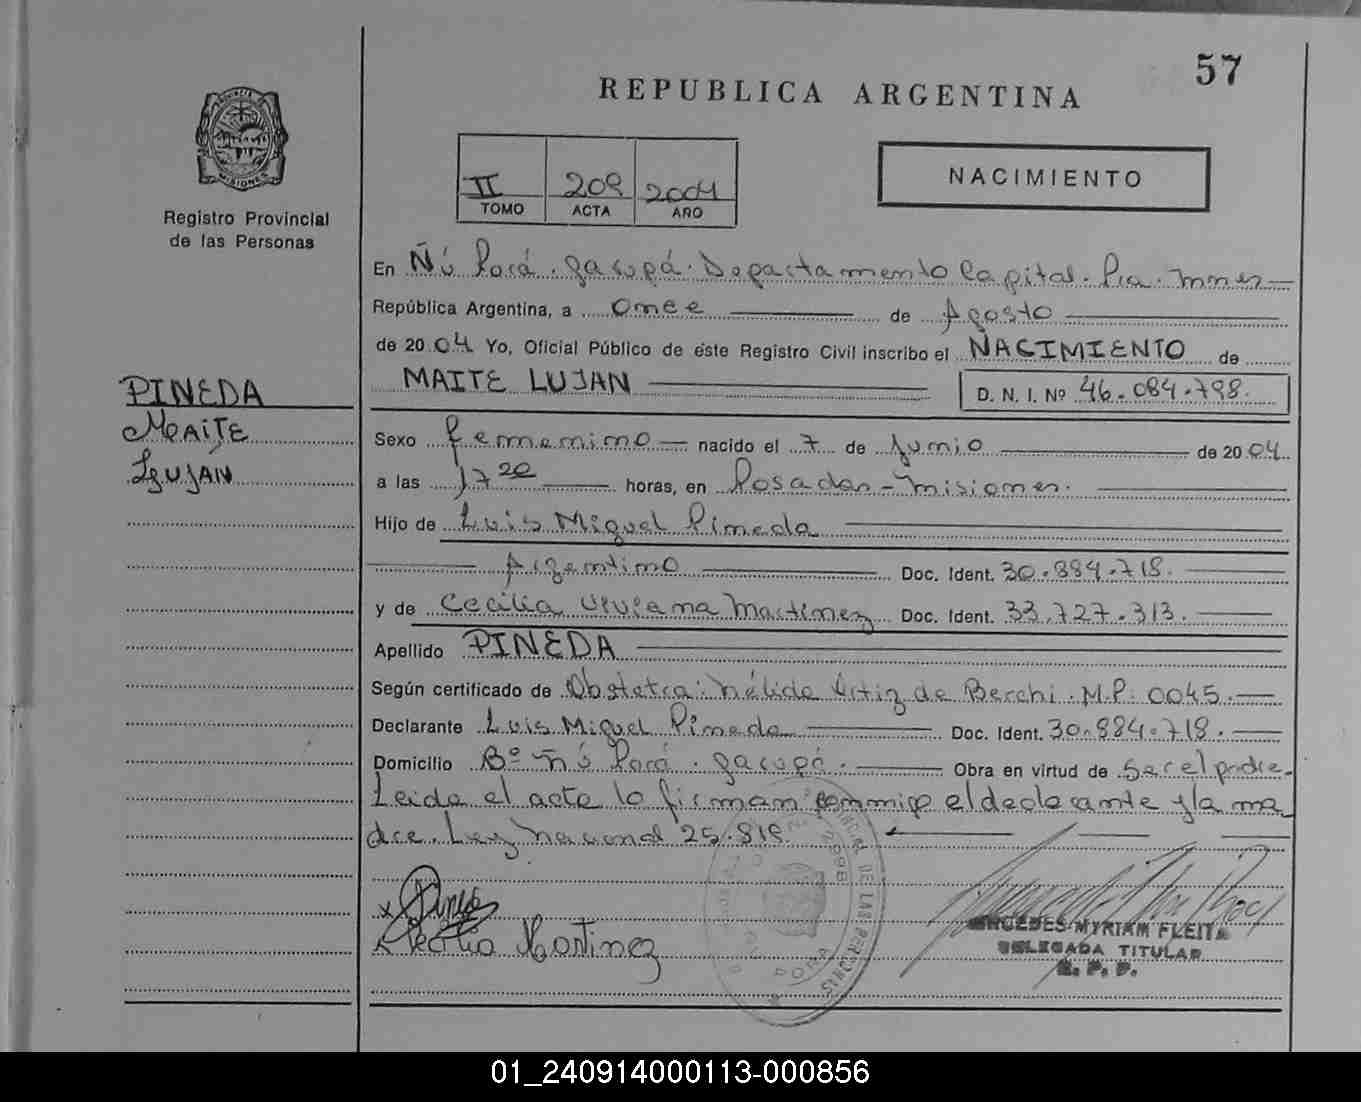 57
REPUBLICA ARGENTINA
PROVINCIA DE MISIONES
Registro Provincial
de las Personas
II 209 2004
TOMO ACTA AÑO
NACIMIENTO
En Ñú Porá. Garupá. Departamento Capital. Pia. Mnes
República Argentina, a Once de Agosto
de 2004 Yo, Oficial Público de este Registro Civil inscribo el NACIMIENTO de
MAITE LUJAN D. N. I. Nº 46.084.798.
PINEDA
MAITE
LUJÁN
Sexo femenino nacido el 7 de Junio de 2004
a las 17 20 horas, en Posadas - Misiones.
Hijo de Luis Miguel Pineda
Argentino Doc. Ident. 30.884.718.
y de Cecilia Viviana Martinez Doc. Ident. 33.727.313.
Apellido PINEDA
Según certificado de Obstetra: Nélida Ortiz de Berchi. M.P. 0045.
Declarante Luis Miguel Pineda Doc. Ident. 30.884.718.
Domicilio Bº Ñú Porá. Garupá. Obra en virtud de Ser el padre.
Leida el acta lo firman conmigo el declarante y la ma
dre. Ley Nacional 25.819.
Cecilia Martinez
MERCEDES MYRIAM FLEITA
DELEGADA TITULAR
R. P. P.
01_240914000113-000856